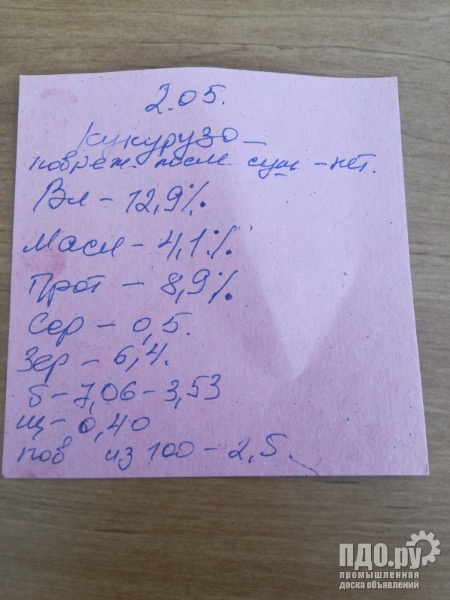 2.05.
Кукурузо -
повреж. после суш - нет.
Вл - 12,9%.
Масл - 4,1%.
Прот - 8,9%.
Сор - 0,5.
Зер - 6,4.
б - 7,06 - 3,53
щ - 0,40
пов из 100 - 2,5.
ПДО.ру
промышленная
доска объявлений